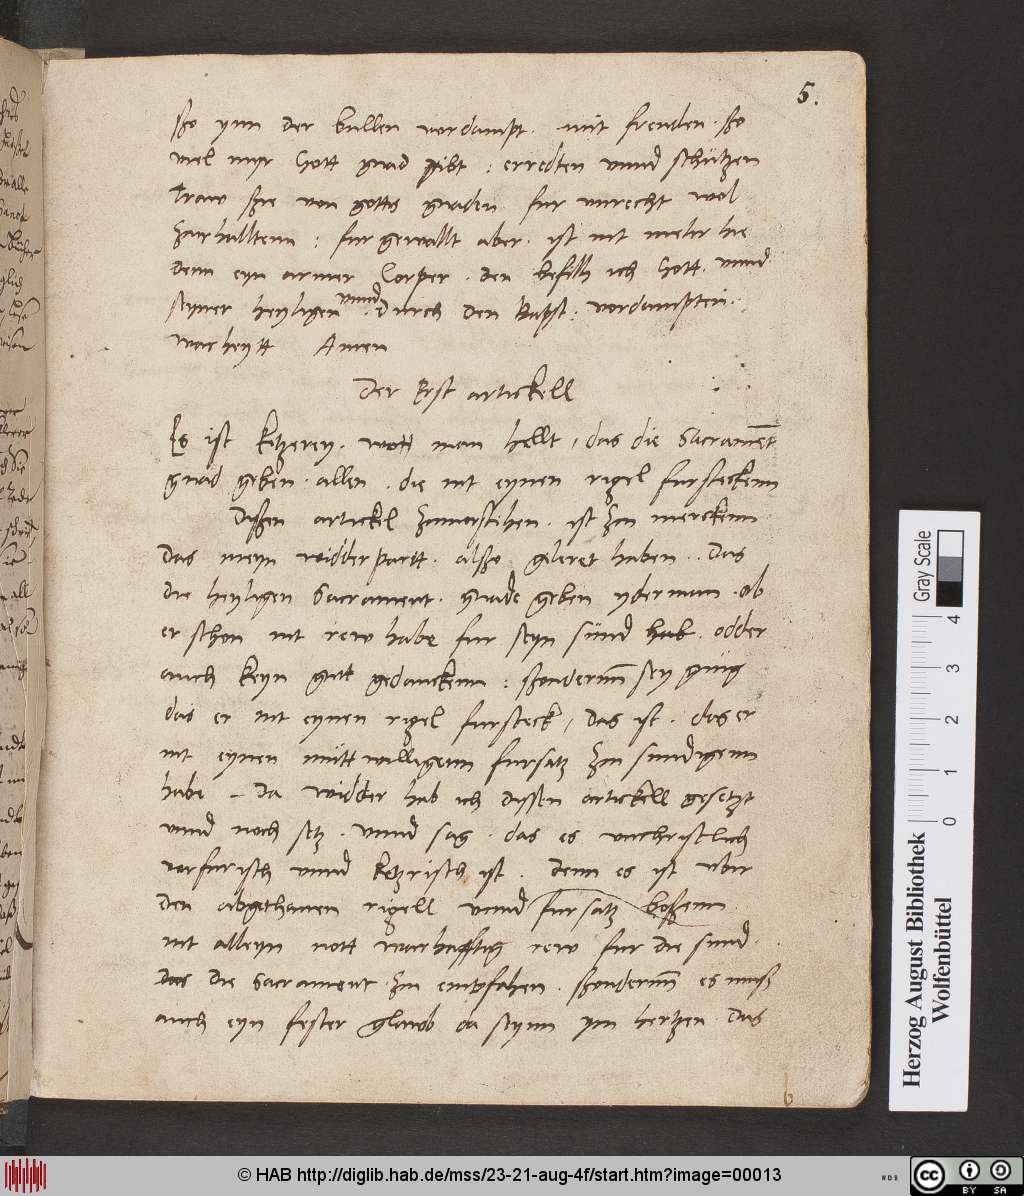 5.
ßo ynn der bullen vordampt. mit freuden. ßo
viel myr Gott gnad gibt : erredten vnnd schützen
Traw ßie von gottis gnaden fur vnrecht wol
zurhalltenn : fur gewallt aber. ist nit mehr hie
denn eyn armer Corper. den befilh ich Gott. vnnd
seyner heyligen vnnd durch den Bapst. vordampten.
warheytt Amen
Der Erst artickell
Es ist ketzerey. wo man hellt, das die Sacrament
gnad geben. allen. die nit eynen rigel fursteckenn
Dißen artickel zuuorstehen. ist zu merckenn
Das meyn widderpartt. alßo geleret haben. Das
die heyligen Sacrament. gnade geben yderman. ob
er schon nit rew habe fur seyn sünd hab. odder
auch keyn gutt gedanckenn : ßondernn sey gnug
das er nit eynen rigel fursteck, Das ist. das er
nit eynen muttwilligenn fursatz zu sundigenn
habe – Da widder hab ich dyssen artickell gesetzt
vnnd noch setz. vnnd sag. das es vnchristlich
vorfurisch vnnd ketzrisch ist. denn es ist vbir
den abgethanen rigell vnnd fursatz boßenn
nit alleyn nott warhafftig rew fur die sund.
Das die Sacrament zu empfahen. ßondernn es muß
auch eyn fester glawb da seynn ym hertzen. Das
b
Gray Scale
0 1 2 3 4
Herzog August Bibliothek
Wolfenbüttel
© HAB http://diglib.hab.de/mss/23-21-aug-4f/start.htm?image=00013
WDB
cc BY SA